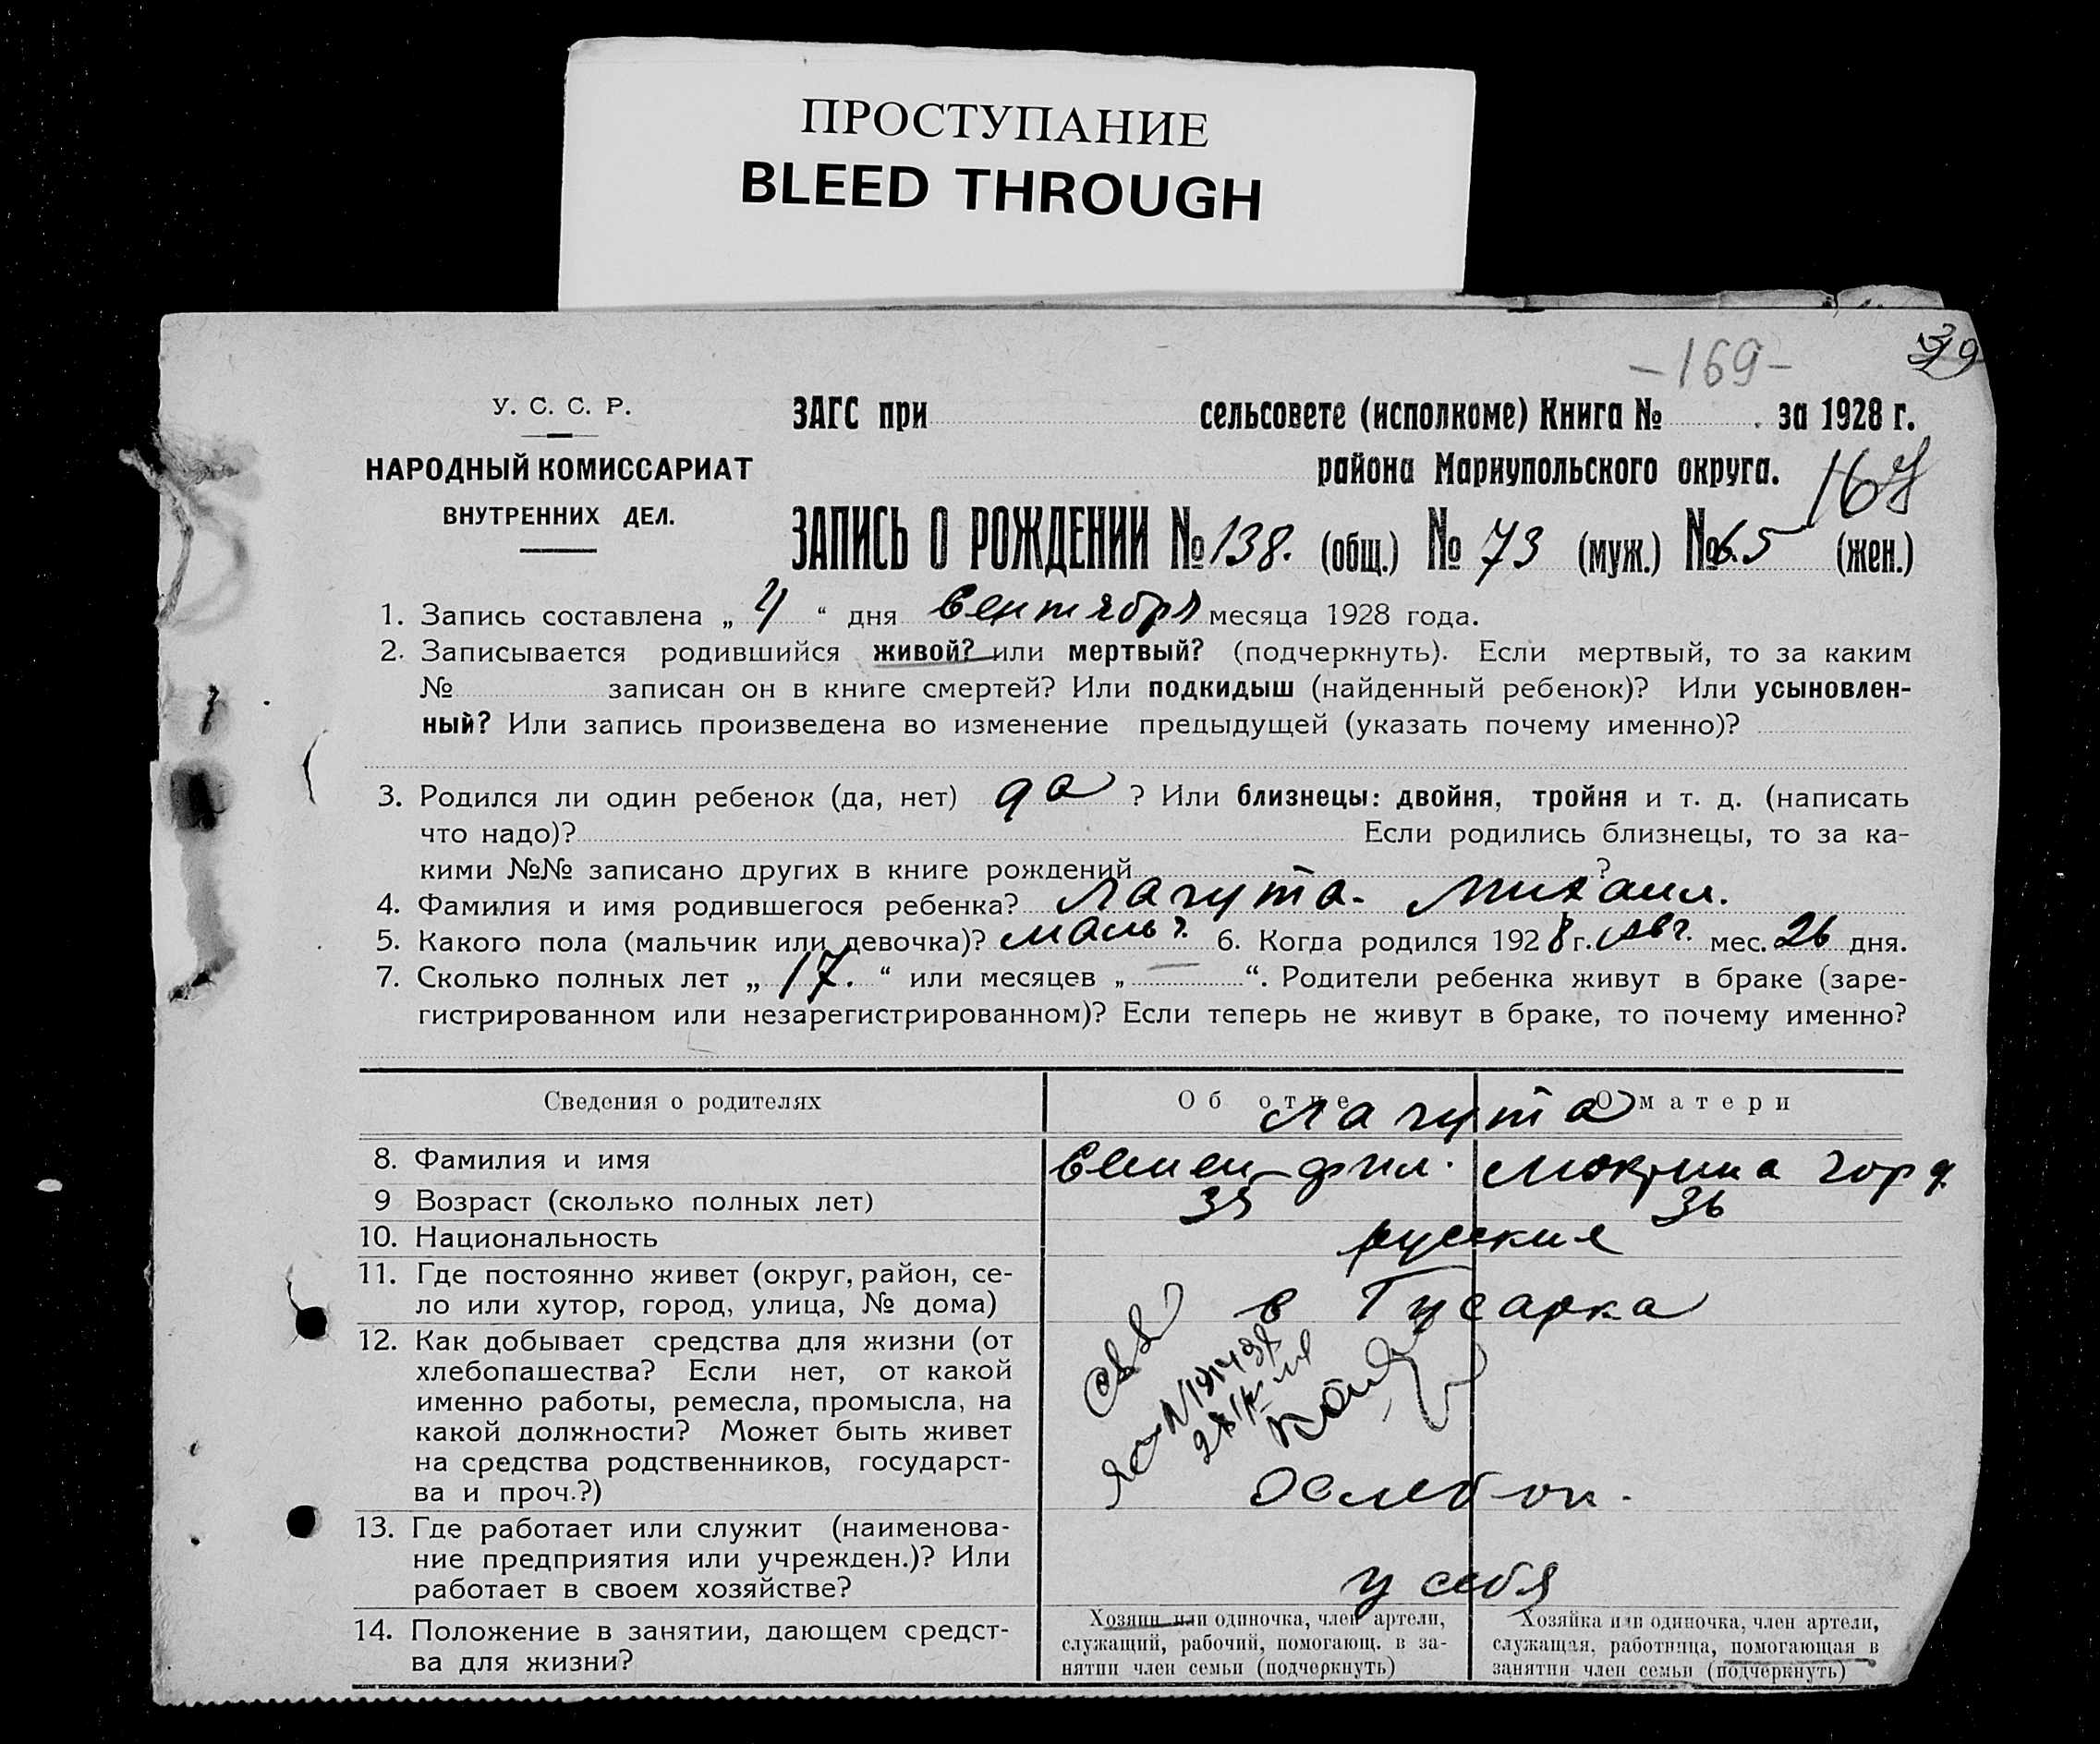 ПРОСТУПАНИЕ
BLEED THROUGH
39
-169-
У. С. С. Р.
ЗАГС при сельсовете (исполкоме) Книга № за 1928 г.
НАРОДНЫЙ КОМИССАРИАТ
района Мариупольского округа.
167
ВНУТРЕННИХ ДЕЛ.
ЗАПИСЬ О РОЖДЕНИИ № 138. (общ.) № 73 (муж.) № 65 (жен.)
1. Запись составлена „ 4 “ дня Сентября месяца 1928 года.
2. Записывается родившийся живой? или мертвый? (подчеркнуть). Если мертвый, то за каким
№ записан он в книге смертей? Или подкидыш (найденный ребенок)? Или усыновлен-
ный? Или запись произведена во изменение предыдущей (указать почему именно)?
3. Родился ли один ребенок (да, нет) да ? Или близнецы: двойня, тройня и т. д. (написать
что надо)? Если родились близнецы, то за ка-
кими №№ записано других в книге рождений ?
4. Фамилия и имя родившегося ребенка? Лагута. Михаил.
5. Какого пола (мальчик или девочка)? мальч. 6. Когда родился 1928 г. Авг. мес. 26 дня.
7. Сколько полных лет „ 17. “ или месяцев „ — “. Родители ребенка живут в браке (заре-
гистрированном или незарегистрированном)? Если теперь не живут в браке, то почему именно?
Сведения о родителях Об отце О матери
Лагута
8. Фамилия и имя Семен фил. Мокрина горд.
9 Возраст (сколько полных лет) 35 36
10. Национальность русские
11. Где постоянно живет (округ, район, се-
ло или хутор, город, улица, № дома) в Гусарка
12. Как добывает средства для жизни (от
хлебопашества? Если нет, от какой
именно работы, ремесла, промысла, на
какой должности? Может быть живет
на средства родственников, государст-
ва и проч.?)
13. Где работает или служит (наименова-
ние предприятия или учрежден.)? Или
работает в своем хозяйстве? у себя
14. Положение в занятии, дающем средст-
ва для жизни?
Хозяин или одиночка, член артели,
служащий, рабочий, помогающ. в за-
нятии член семьи (подчеркнуть)
Хозяйка или одиночка, член артели,
служащая, работница, помогающая в
занятии член семьи (подчеркнуть)